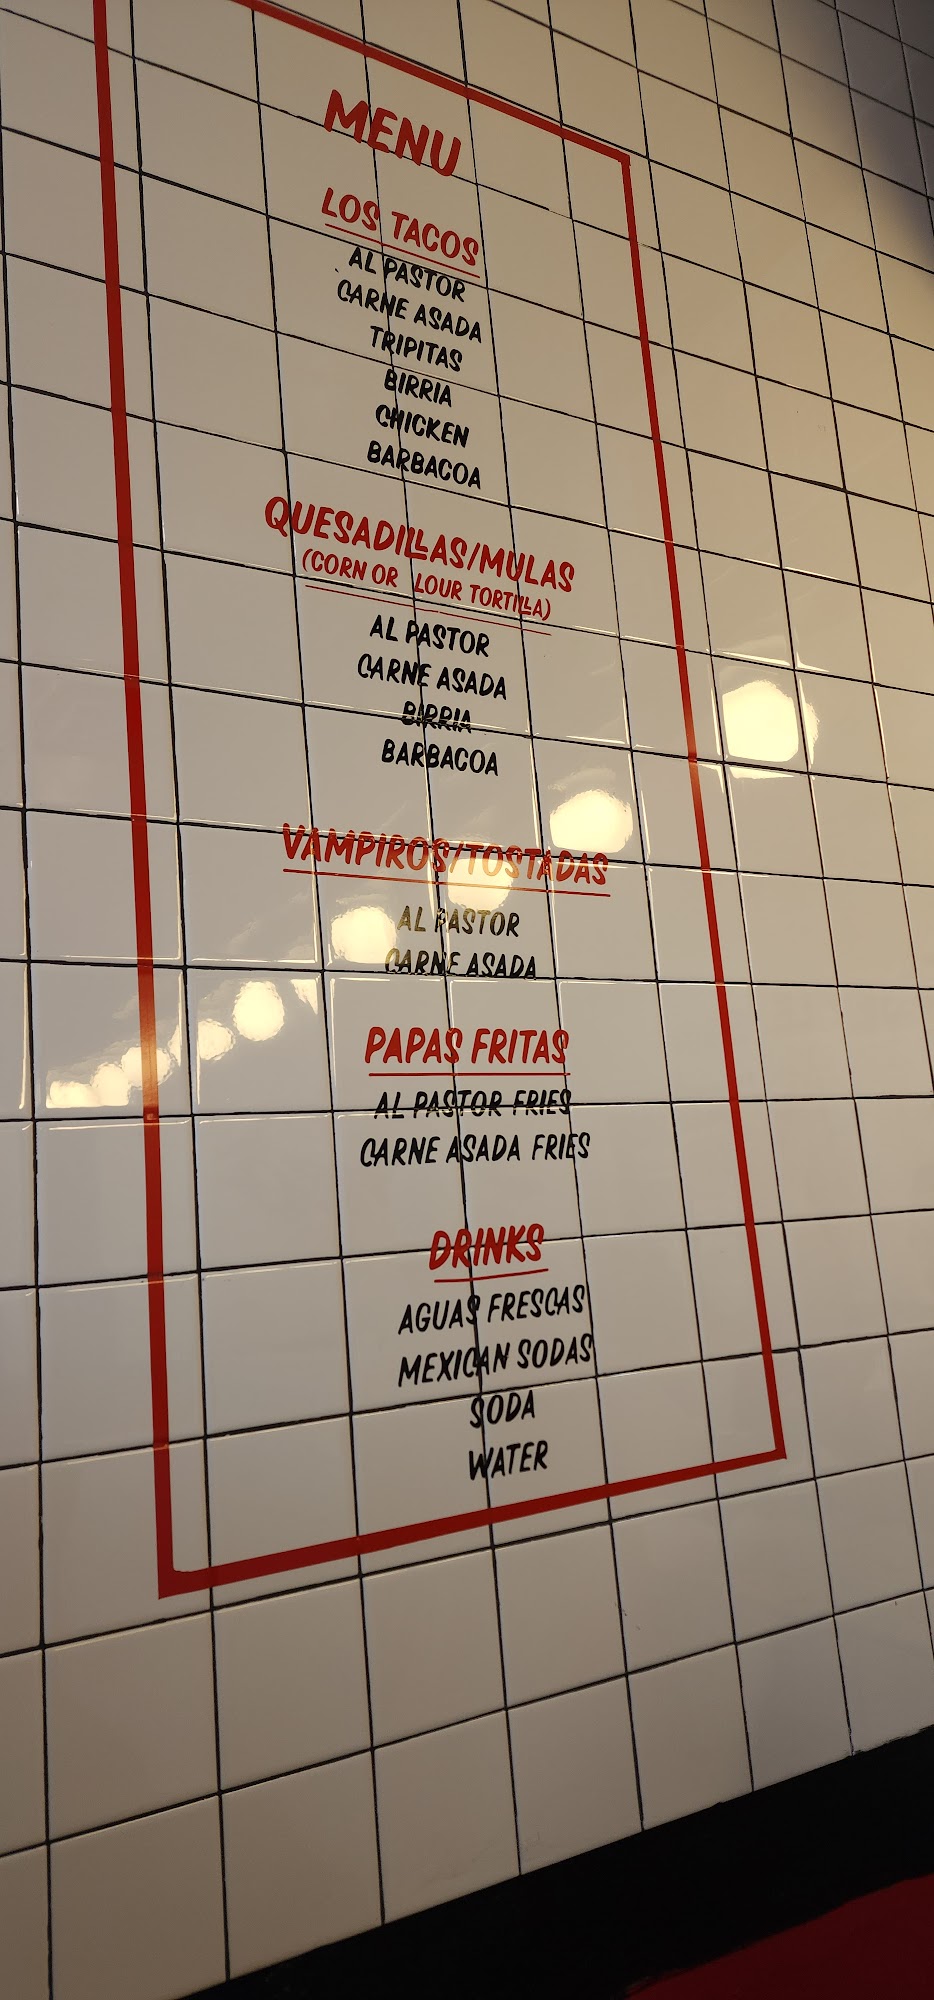 MENU
LOS TACOS
AL PASTOR
CARNE ASADA
TRIPITAS
BIRRIA
CHICKEN
BARBACOA
QUESADILLAS/MULAS
(CORN OR LOUR TORTILLA)
AL PASTOR
CARNE ASADA
BIRRIA
BARBACOA
VAMPIROS/TOSTADAS
AL PASTOR
CARNE ASADA
PAPAS FRITAS
AL PASTOR FRIES
CARNE ASADA FRIES
DRINKS
AGUAS FRESCAS
MEXICAN SODAS
SODA
WATER